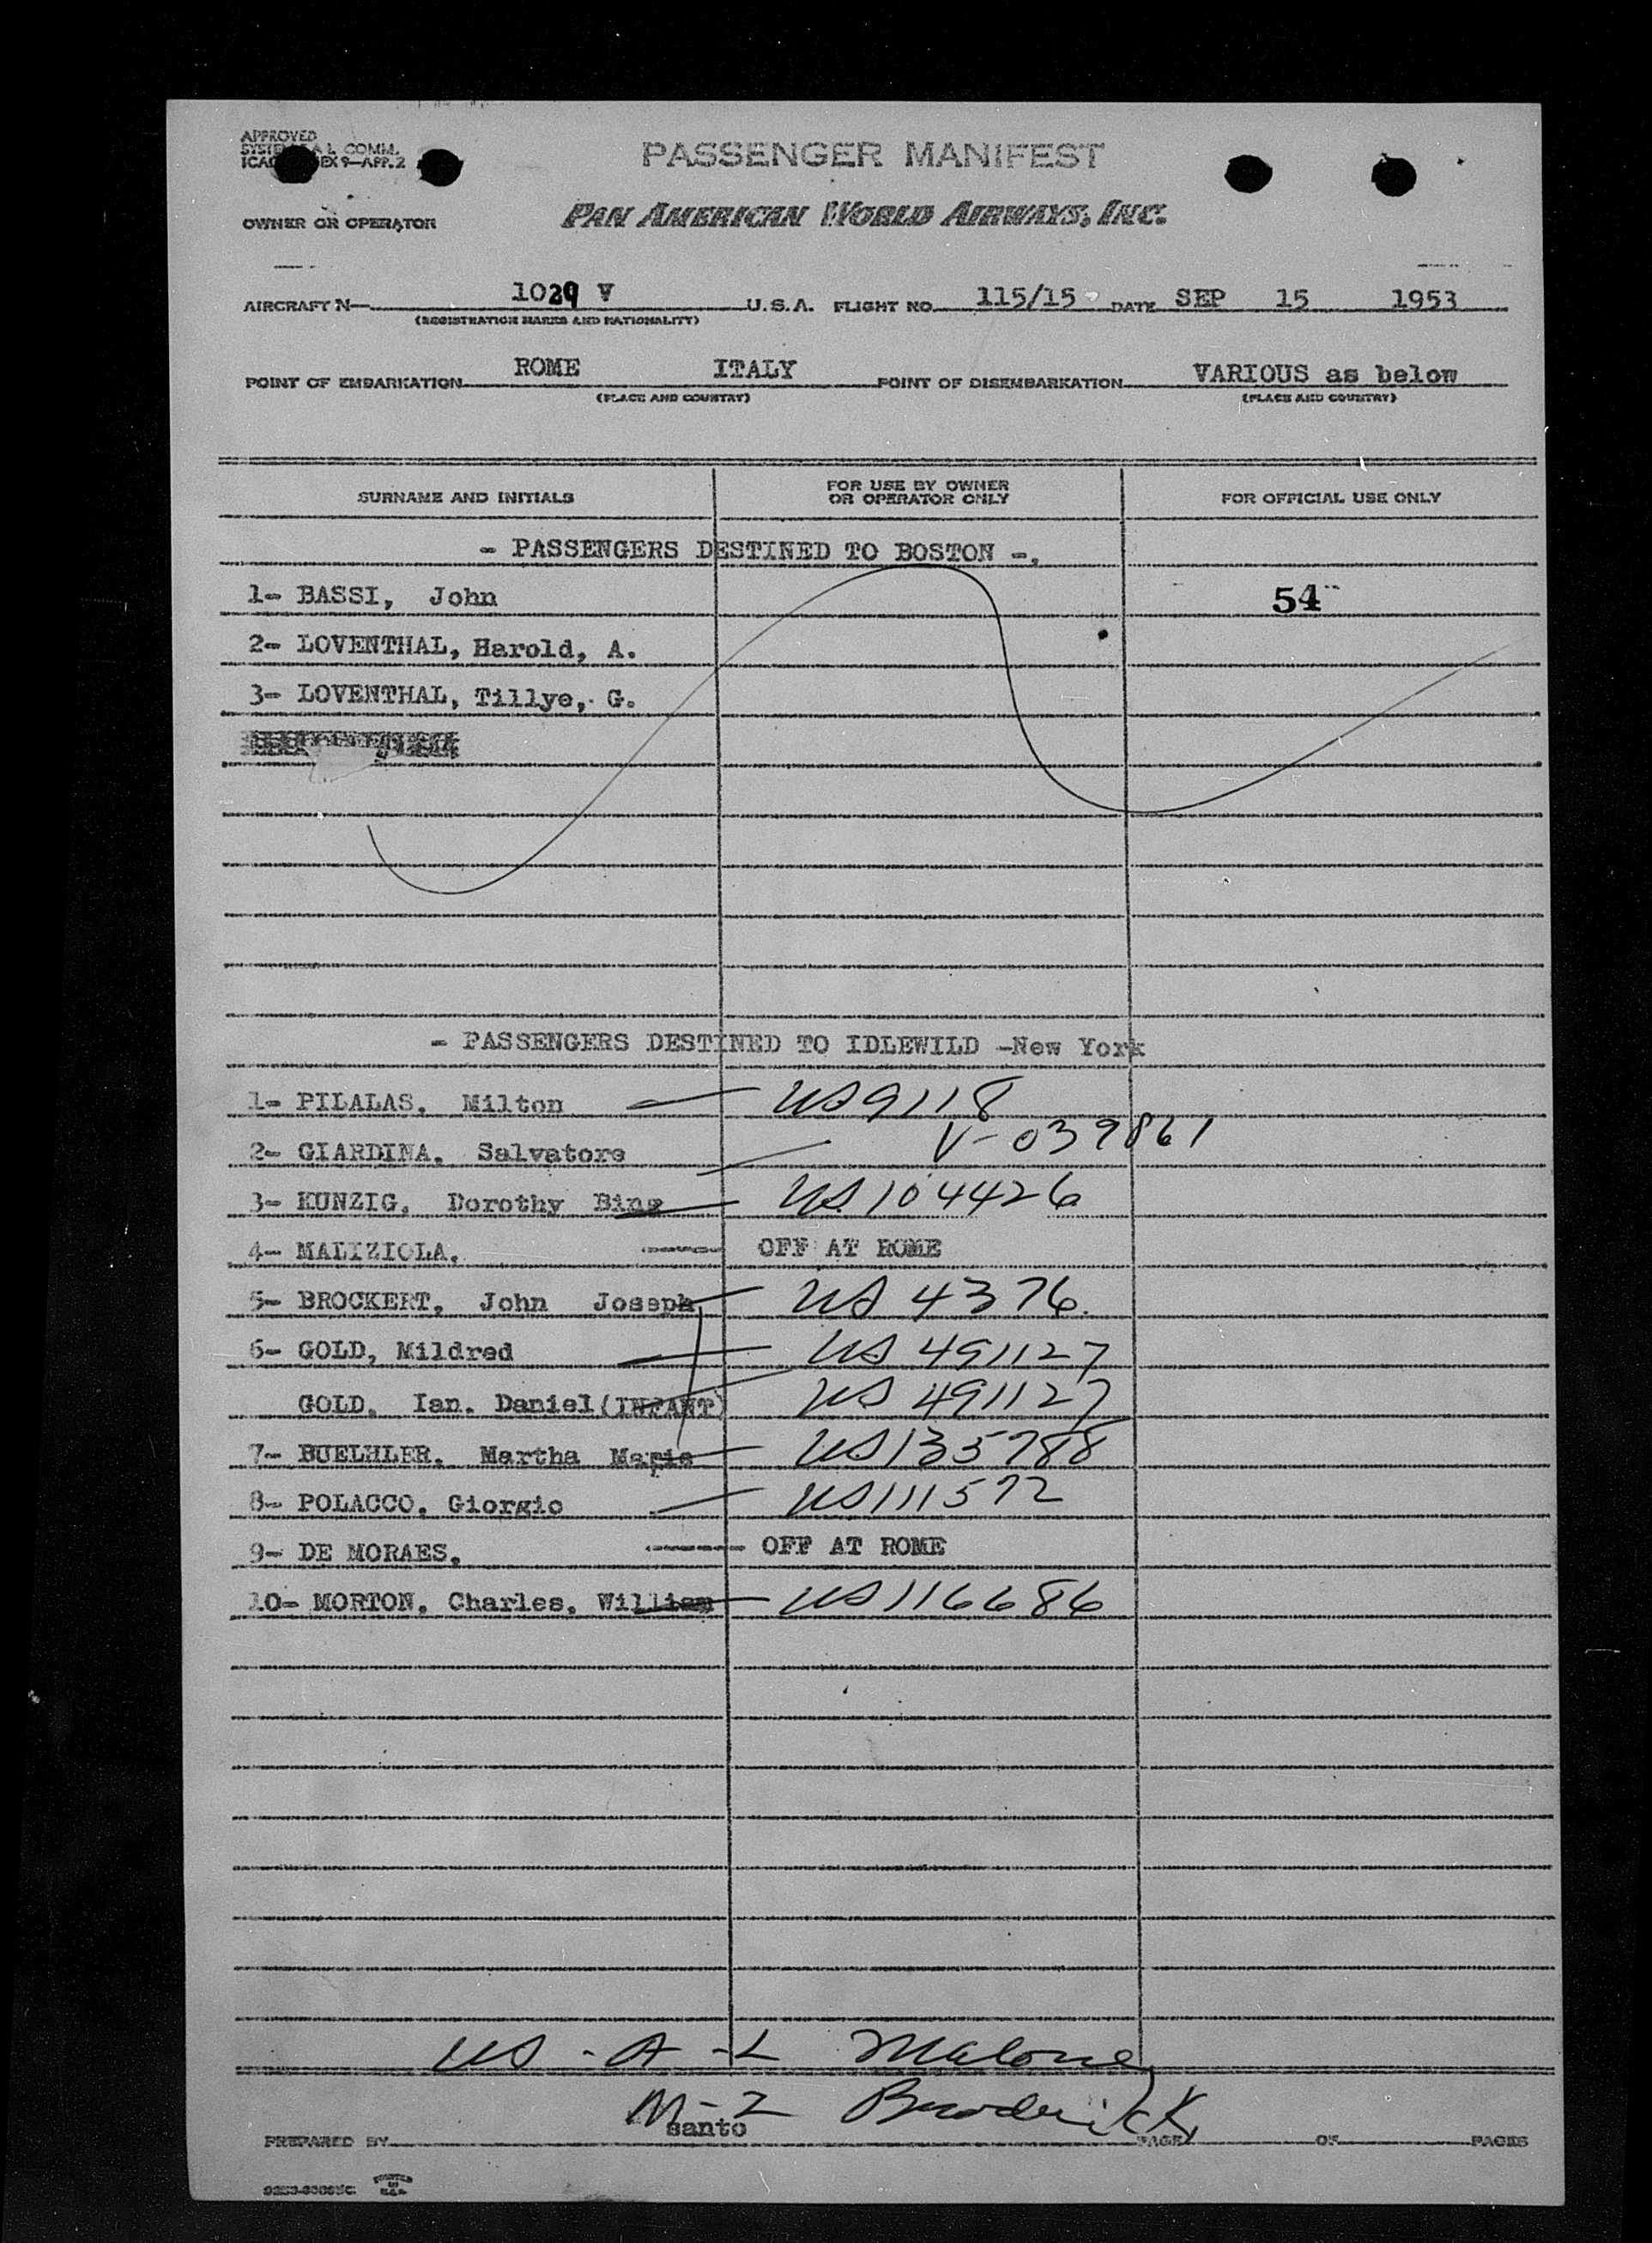 APPROVED
COMM.
9—APP. 2
PASSENGER MANIFEST
OWNER OR OPERATOR
PAN AMERICAN WORLD AIRWAYS, INC.
AIRCRAFT N— 1029 V U.S.A. FLIGHT NO. 115/15 DATE SEP 15 1953
(REGISTRATION MARKS AND NATIONALITY)
POINT OF EMBARKATION ROME ITALY POINT OF DISEMBARKATION VARIOUS as below
(PLACE AND COUNTRY) (PLACE AND COUNTRY)
SURNAME AND INITIALS FOR USE BY OWNER OR OPERATOR ONLY FOR OFFICIAL USE ONLY
- PASSENGERS DESTINED TO BOSTON -.
1- BASSI, John 54
2- LOVENTHAL, Harold, A.
3- LOVENTHAL, Tillye, G.
- PASSENGERS DESTINED TO IDLEWILD -New York
1- PILALAS. Milton US 9118
2- GIARDINA. Salvatore V-039861
3- KUNZIG. Dorothy Bing US 104426
4- MALIZIOLA. OFF AT ROME
5- BROCKERT. John Joseph US 4376.
6- GOLD, Mildred US 491127
GOLD. Ian. Daniel (INFANT) US 491127
7- BUELHLER. Martha Marie US 135788
8- POLACCO. Giorgio US 111572
9- DE MORAES. OFF AT ROME
10- MORTON. Charles. William US 116686
US - A - L Maloney
M-2 Broderick
PREPARED BY santo PAGE OF PAGES
PRINTED IN U.S.A.